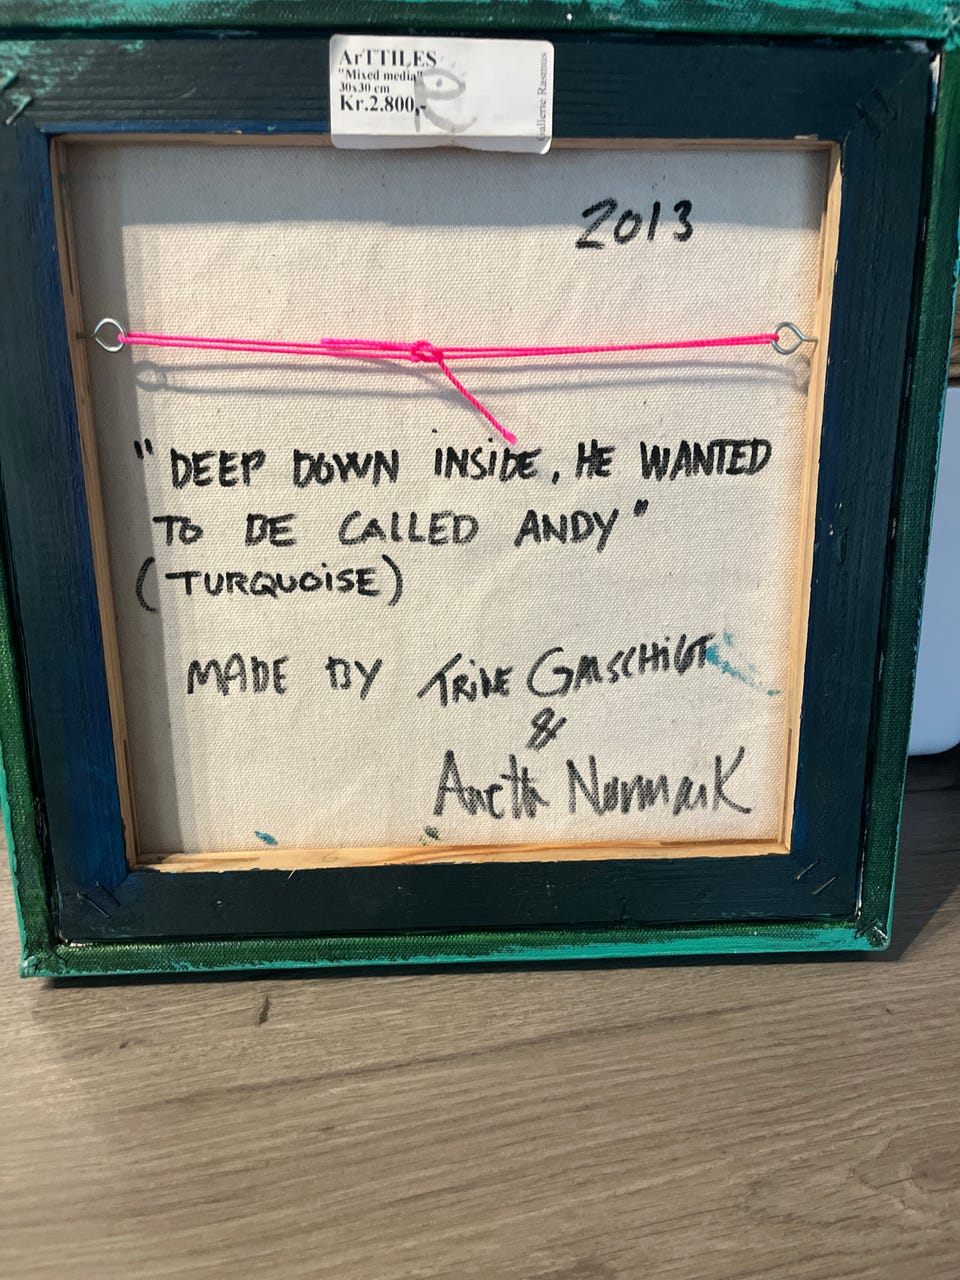 ArTTILES
"Mixed media"
30x30 cm
Kr.2.800,-
Gallerie Rasmus
2013
"DEEP DOWN INSIDE, HE WANTED
TO BE CALLED ANDY"
(TURQUOISE)
MADE BY TRINE
&
Anette Normark